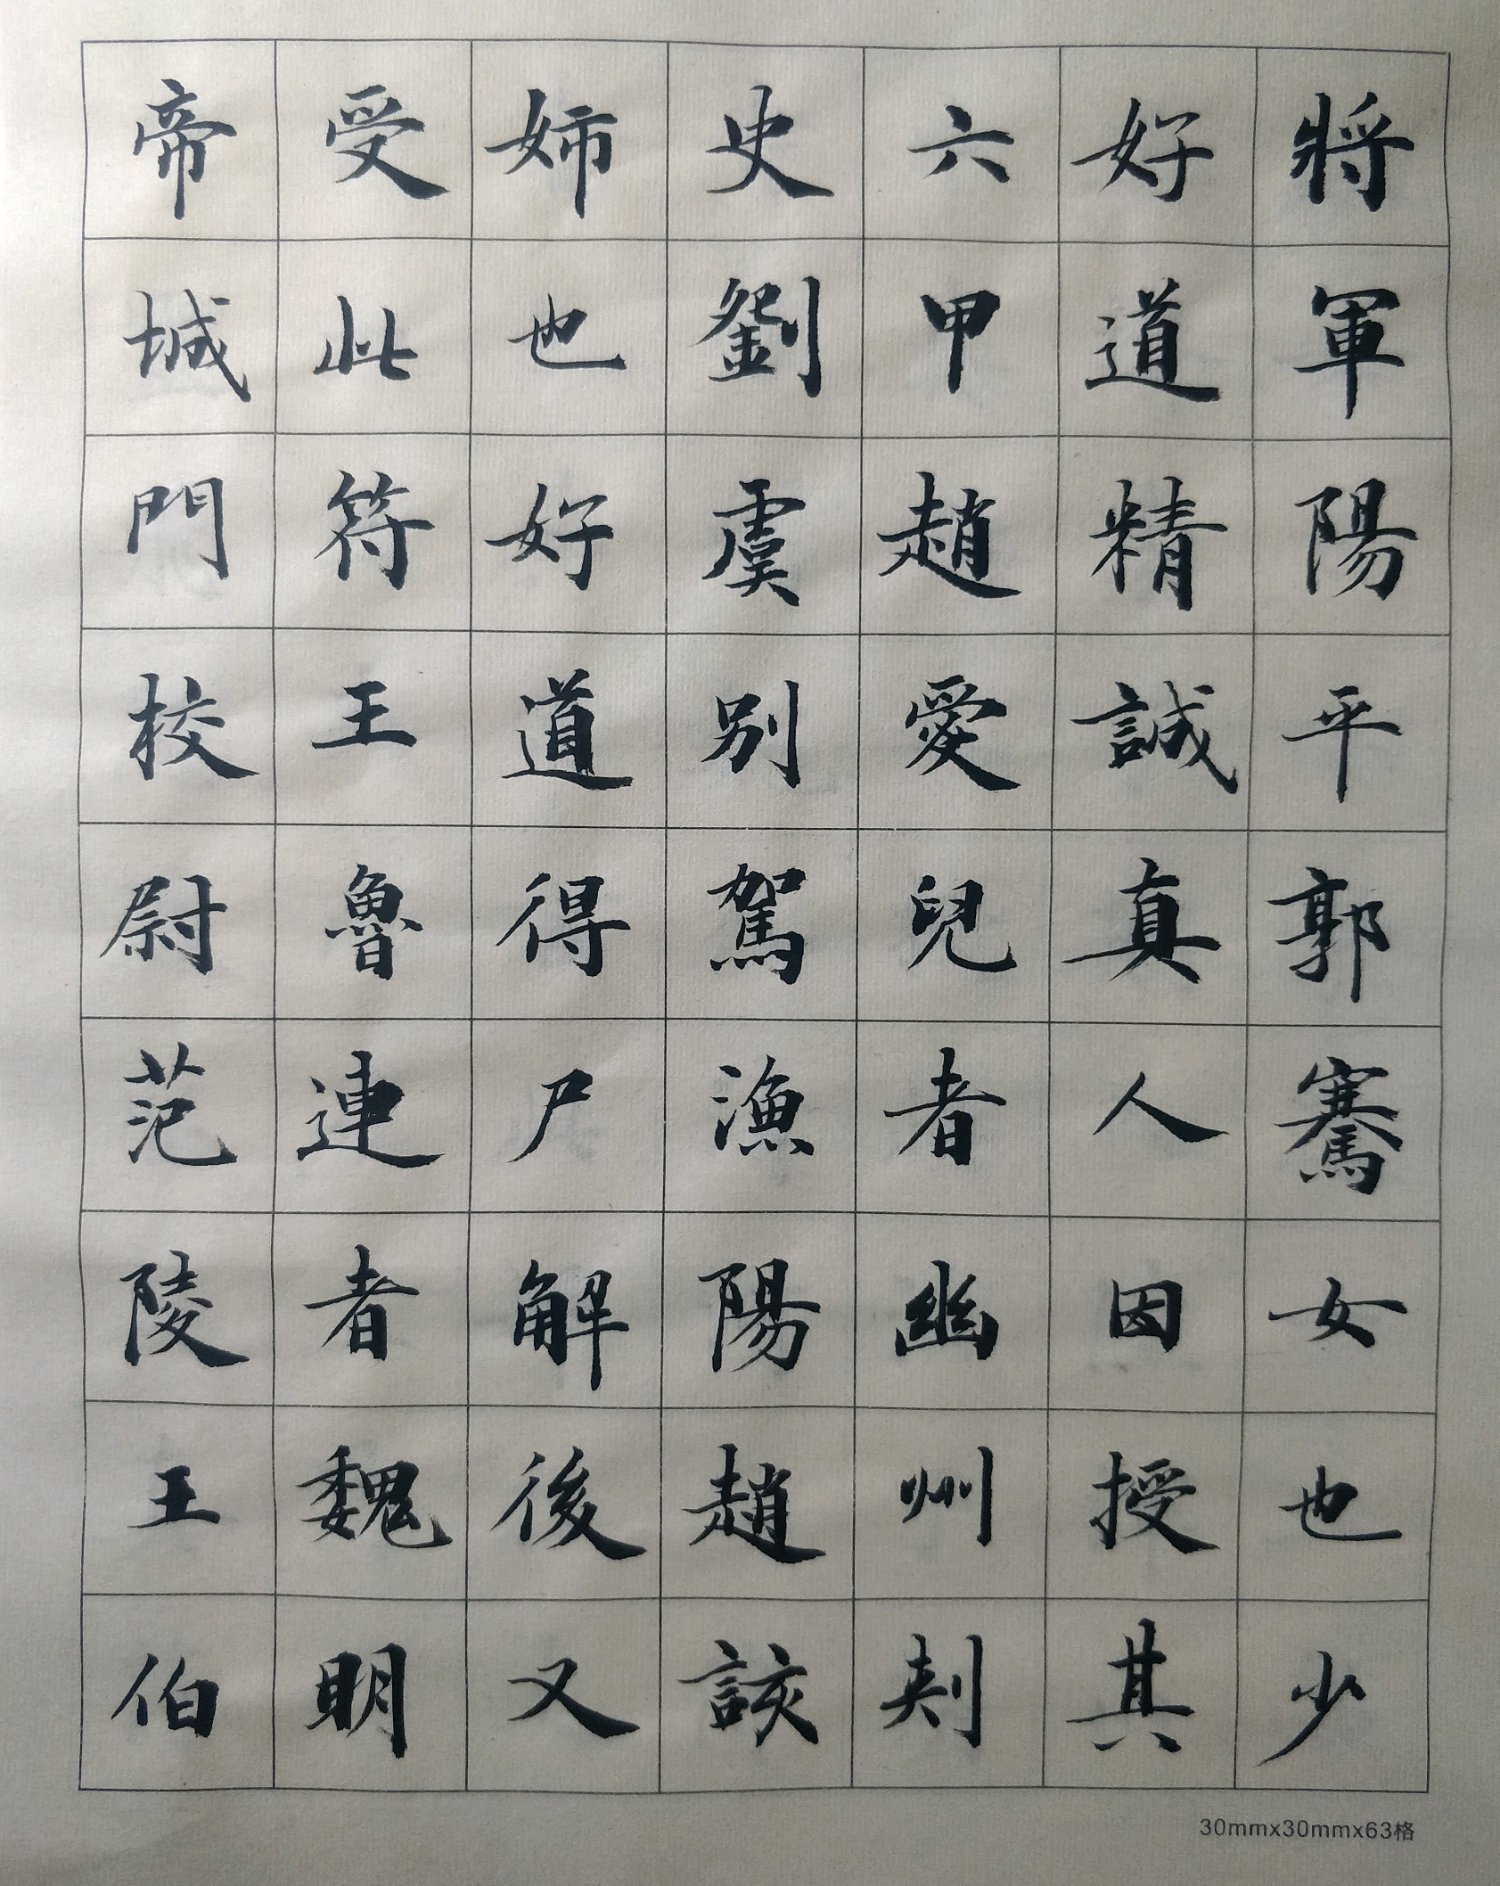 將軍陽平郭騫女也少
好道精誠真人因授其
六甲趙愛兒者幽州刾
史劉虞別駕漁陽趙該
姉也好道得尸解後又
受此符王魯連者魏明
帝城門校尉范陵王伯
30mmx30mmx63格